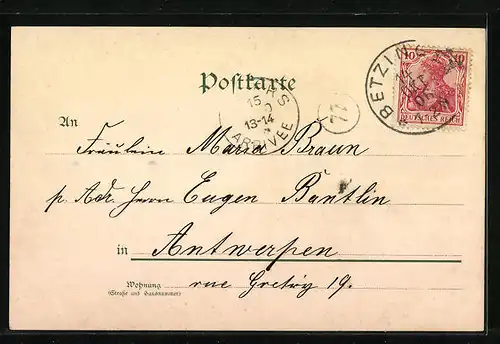 Postkarte
10
BETZIN
DEUTSCHES REICH
15
13-14
ARRIVÉE
22
An
Fräulein Maria Braun
p. Adr. Herrn Eugen Bantlin
in Antwerpen
Wohnung
(Straße und Hausnummer)
rue Gretry 19.